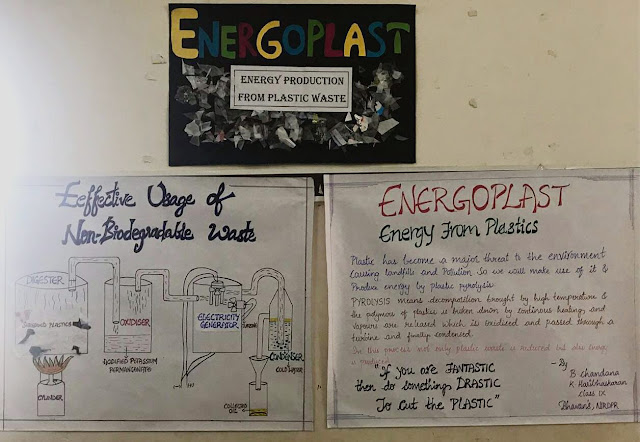 ENERGOPLAST
ENERGY PRODUCTION
FROM PLASTIC WASTE
Effective Usage of
Non-Biodegradable Waste
DIGESTER
PLASTICS
OXIDISER
ACIDIFIED POTASSIUM
PERMANGANATE
CYLINDER
ELECTRICITY
GENERATOR
TURBINE
CONDENSER
COLD WATER
COLLECTED
OIL
ENERGOPLAST
Energy From Plastics
Plastic has become a major threat to the environment
causing landfills and Pollution. So we will make use of it &
Produce energy by plastic pyrolysis.
PYROLYSIS means decomposition brought by high temperature &
the polymers of plastic is broken down by continous heating, and
vapours are released which is oxidised and passed through a
turbine and finally condensed.
In this process not only plastic waste is reduced but also energy
is produced
"If you are FANTASTIC
then do something DRASTIC
To Cut the PLASTIC"
- By
B Chandana
K Haribhaskaran
Class IX
Bhavan's,